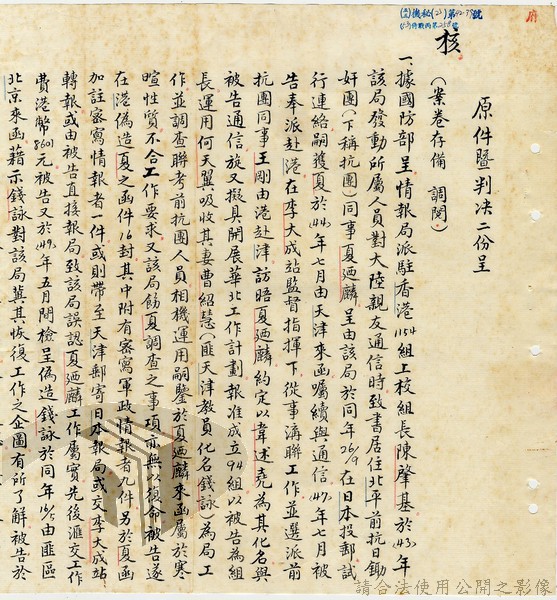 核
原件暨判决二份呈
(案卷存備 調閱)
一、據國防部呈情報局派駐香港1154組上校組長陳肇基於(43)年
該局發動所屬人員對大陸親友通信時致書居住北平前抗日鋤
奸團(下稱抗團)同事夏迺麟呈由該局於同年26/9在日本投郵試
行連絡嗣獲夏於(44)年七月由天津來函囑續與通信(47)年七月被
告奉派赴港在李大成站監督指揮下從事溝聯工作並選派前
抗團同事王剛由港赴津訪晤夏迺麟約定以韋述堯為其化名與
被告通信旋又擬具開展華北工作計劃報准成立94組以被告為組
長運用何天翼吸收其妻曹紹蕙(匪天津教員化名錢詠)為局工
作並調查聯考前抗團人員相機運用嗣鑒於夏迺麟來函屬於寒
暄性質不合工作要求又該局飭夏調查之事項亦無以復命被告遂
在港偽造夏之函件16封其中附有密寫軍政情報者九件另於夏函
加註密寫情報者一件或則帶至天津郵寄日本報局或交李大成站
轉報或由被告直接報局致該局誤認夏迺麟工作屬實先後滙交工作
費港幣8601元被告又於(49)年五月間檢呈偽造錢詠於同年15/5由匪區
北京來函藉示錢詠對該局冀其恢復工作之企圖有所了解被告於
請合法使用公開之影像